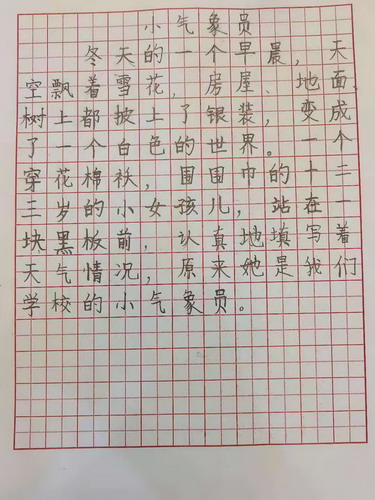 小气象员
冬天的一个早晨，天
空飘着雪花，房屋、地面、
树上都披上了银装，变成
了一个白色的世界。一个
穿花棉袄，围围巾的十二
三岁的小女孩儿，站在一
块黑板前，认真地填写着
天气情况，原来她是我们
学校的小气象员。